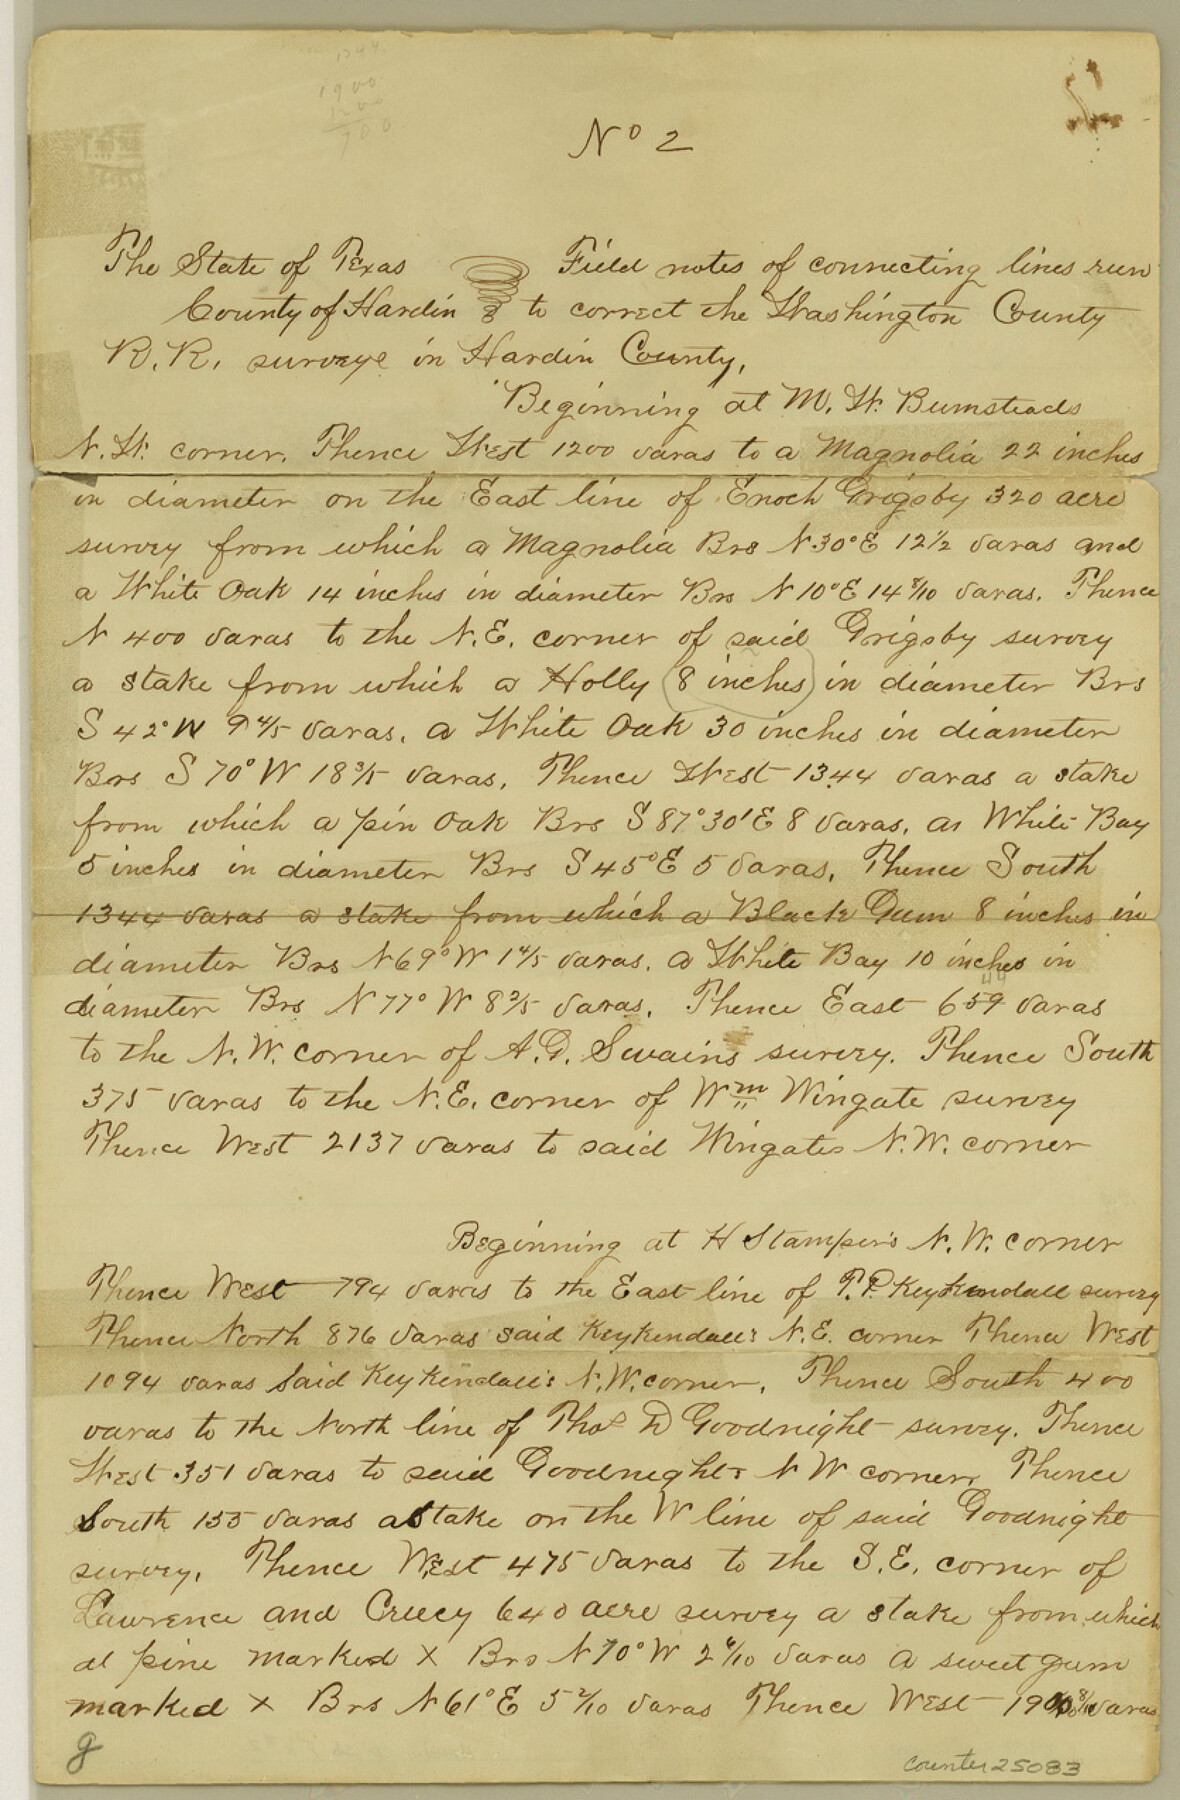 1344
1900
1200
700
No 2
The State of Texas Field notes of connecting lines run
County of Hardin to correct the Washington County
R.R. surveye in Hardin County,
Beginning at M. W. Bumsteads
N.W. corner. Thence West 1200 varas to a Magnolia 22 inches
in diameter on the East line of Enoch Grigsby 320 acre
survey from which a Magnolia Brs N.30°E 12 1/2 varas and
a White Oak 14 inches in diameter Brs N 10°E 14 8/10 varas. Thence
N 400 varas to the N.E. corner of said Grigsby survey
a stake from which a Holly (8 inches) in diameter Brs
S 42° W 9 4/5 varas. a White Oak 30 inches in diameter
Brs S 70° W 18 3/5 varas. Thence West 1344 varas a stake
from which a pin Oak Brs S 87°30'E 8 varas. a White Bay
5 inches in diameter Brs S 45°E 5 varas. Thence South
1344 varas a stake from which a Black Gum 8 inches in
diameter Brs N 69° W 1 4/5 varas. a White Bay 10 inches in
diameter Brs N 77° W 8 2/5 varas. Thence East 659 varas
to the N.W. corner of A.G. Swains survey. Thence South
375 varas to the N.E. corner of Wm Wingate survey
Thence West 2137 varas to said Wingates N.W. corner
Beginning at H Stamper's N.W. corner
Thence West 794 varas to the East line of T.P. Keykendall survey
Thence North 876 varas said Keykendall's N.E. corner Thence West
1094 varas said Keykendall's N.W. corner. Thence South 400
varas to the North line of Thos D Goodnight survey. Thence
West 351 varas to said Goodnights N W corner, Thence
South 155 varas a Stake on the W line of said Goodnight
survey. Thence West 475 varas to the S.E. corner of
Lawrence and Creecy 640 acre survey a stake from which
a pine marked X Brs N 70° W 2 6/10 varas a sweet gum
marked X Brs N 61° E 5 2/10 varas Thence West varas
g
counter 25083